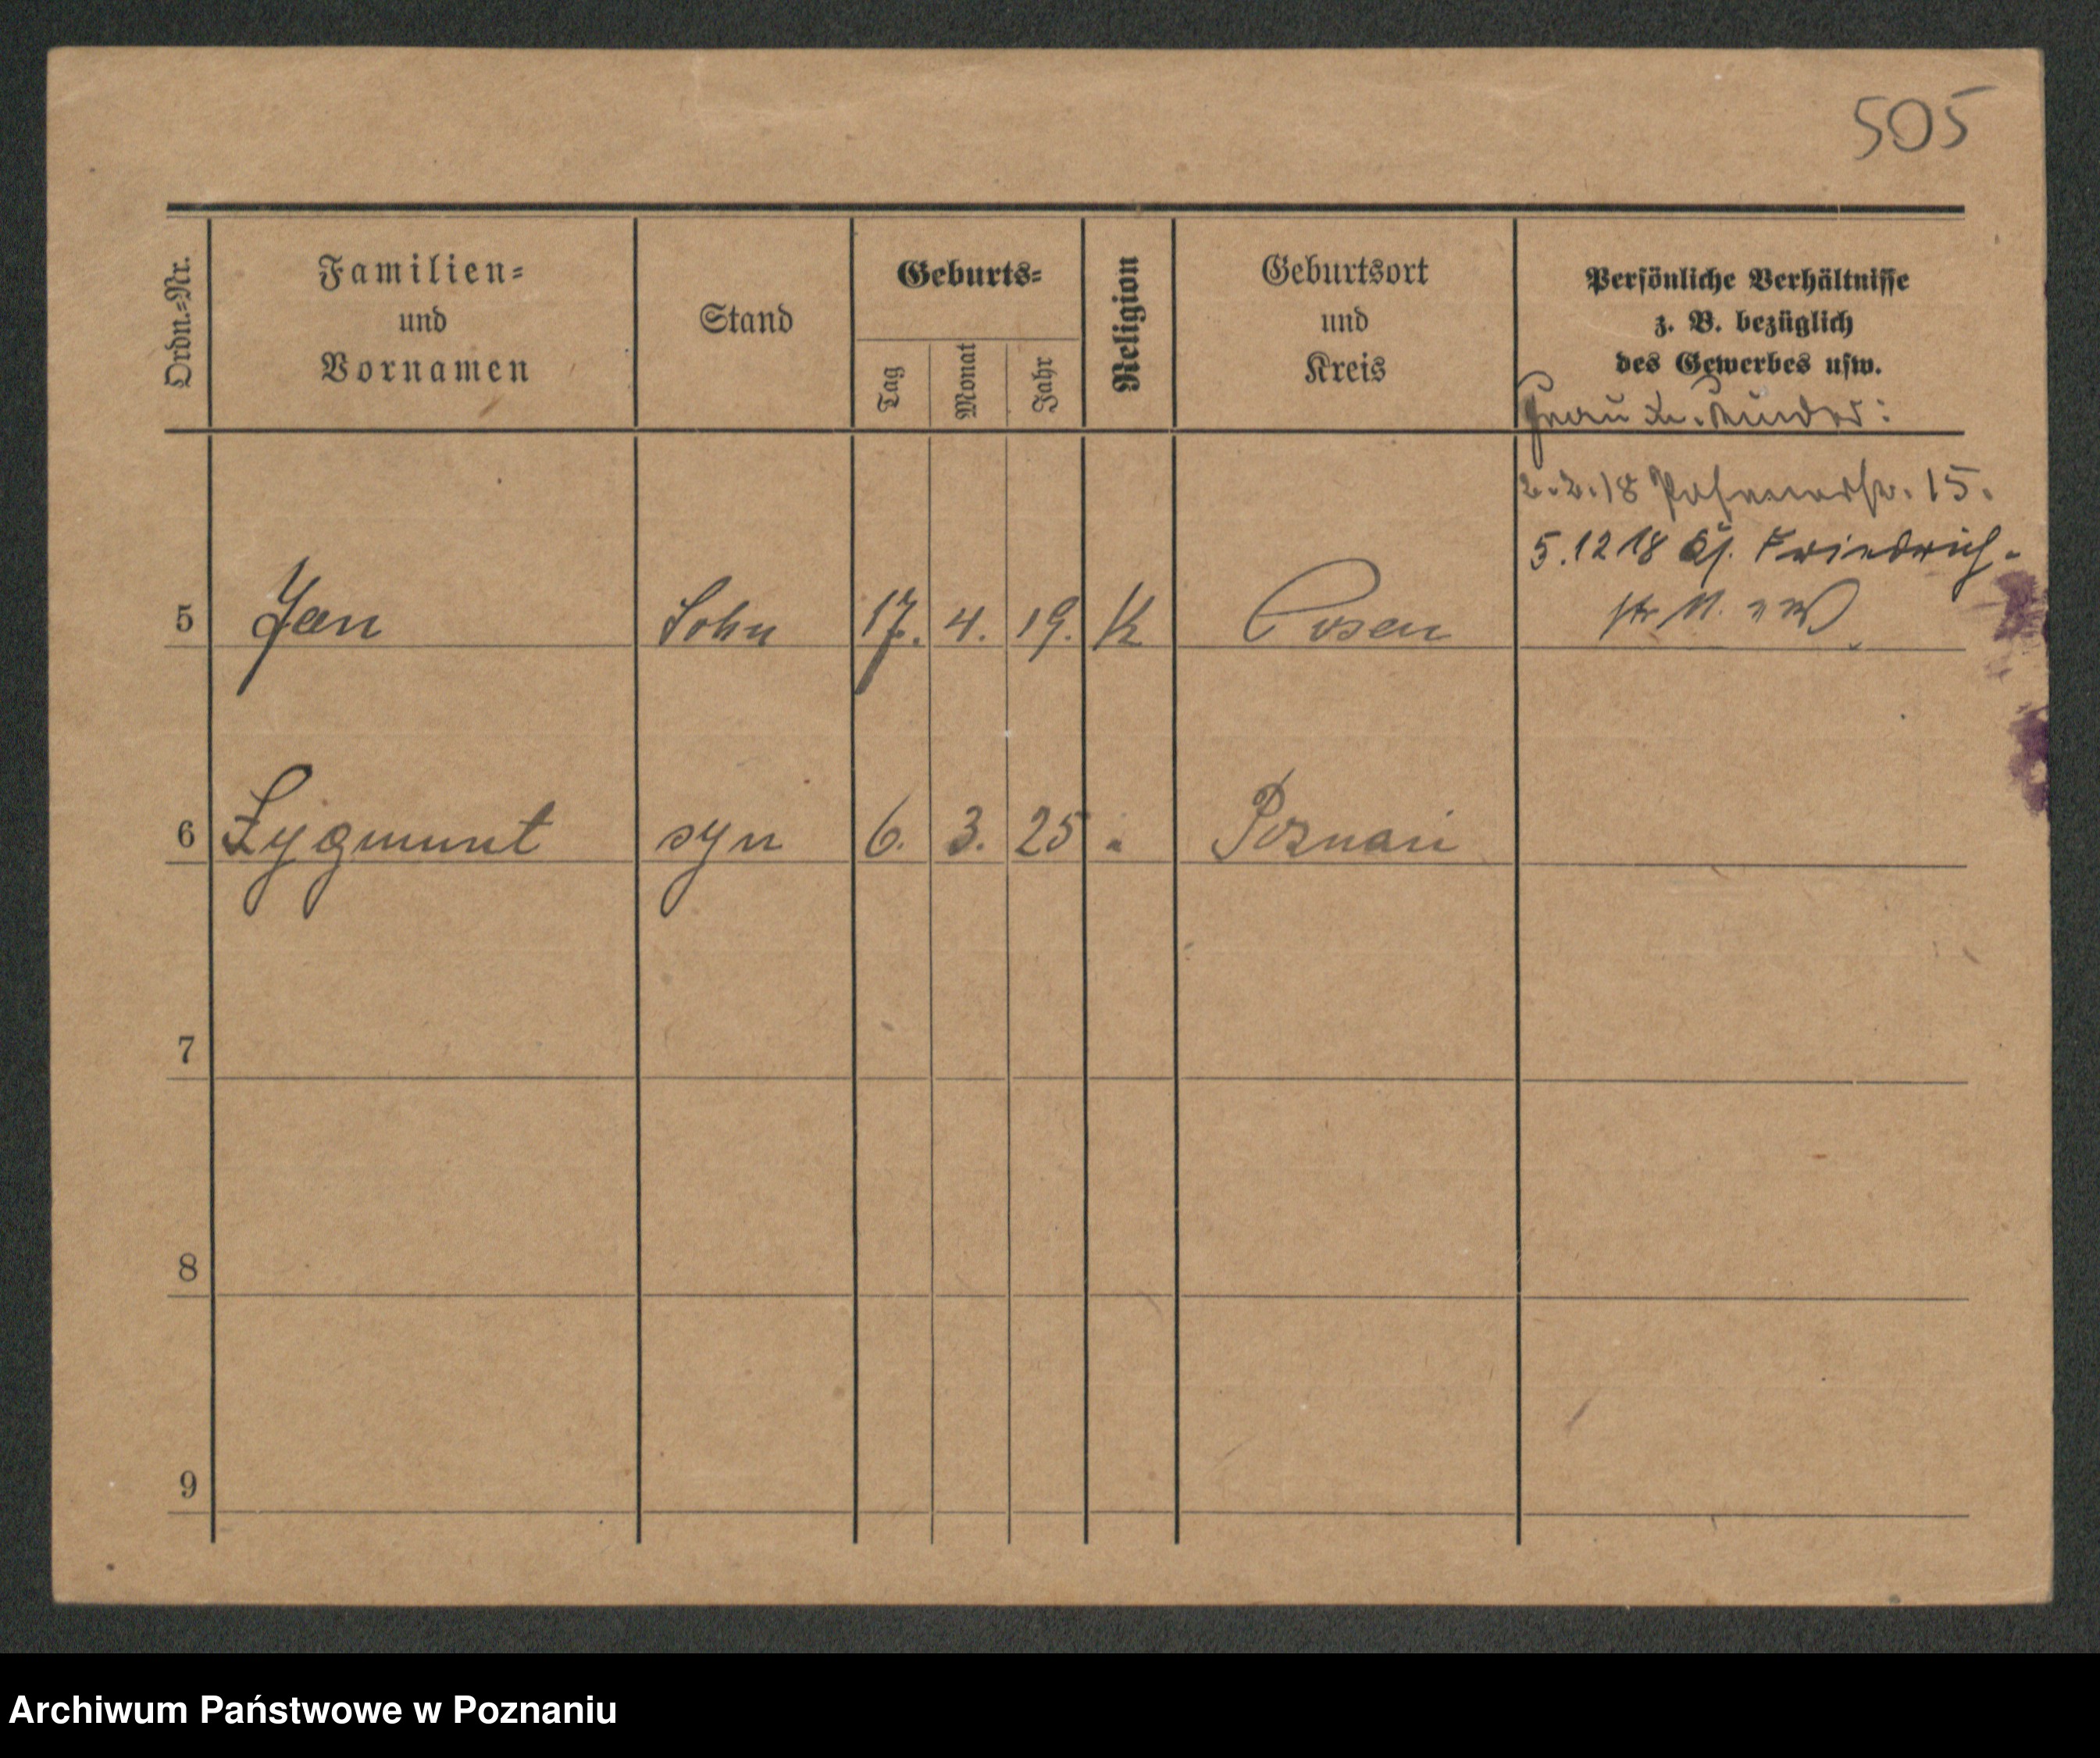 505
Ordn.=Nr.
Familien=
und
Vornamen
Stand
Geburts=
Tag
Monat
Jahr
Religion
Geburtsort
und
Kreis
Persönliche Verhältnisse
z. B. bezüglich
des Gewerbes usw.
Frau u. Kinder:
2.2.18 15.
5.12 18 Friedrich-
str
5 Jan Sohn 17. 4. 19. K Posen
6 Zygmunt syn 6. 3. 25 Poznań
7
8
9
Archiwum Państwowe w Poznaniu